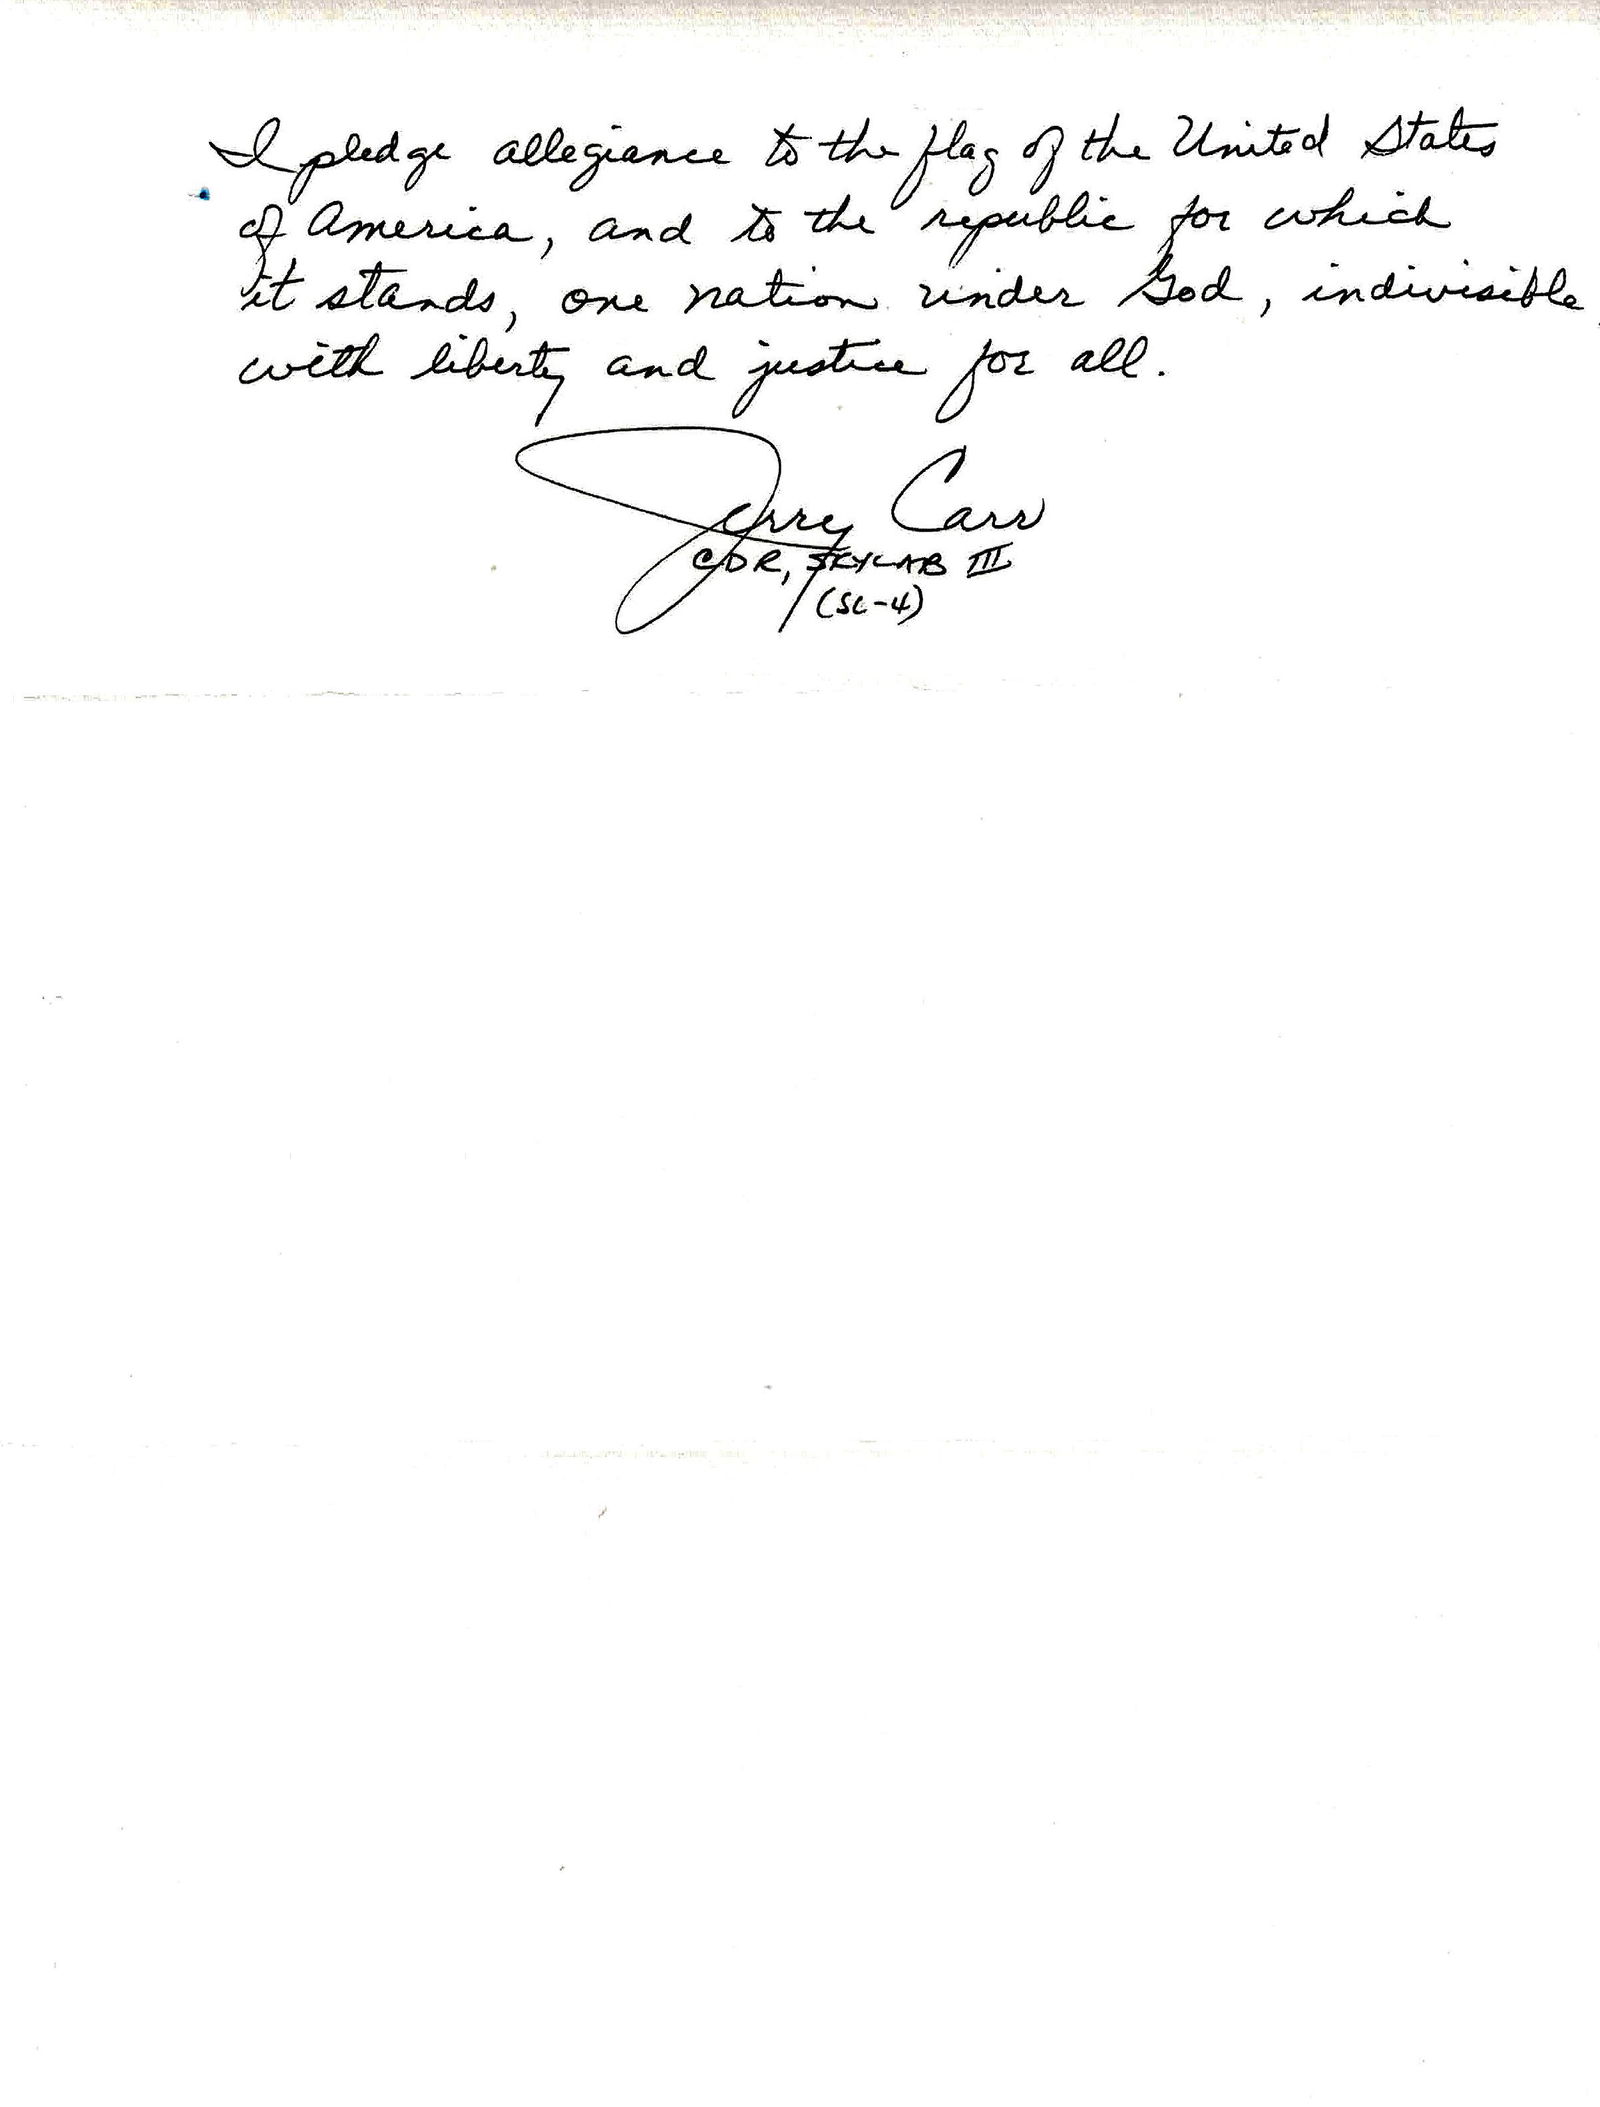 I pledge allegiance to the flag of the United States
of America, and to the republic for which
it stands, one nation under God, indivisible,
with liberty and justice for all.
Jerry Carr
CDR, SKYLAB III
(SL-4)